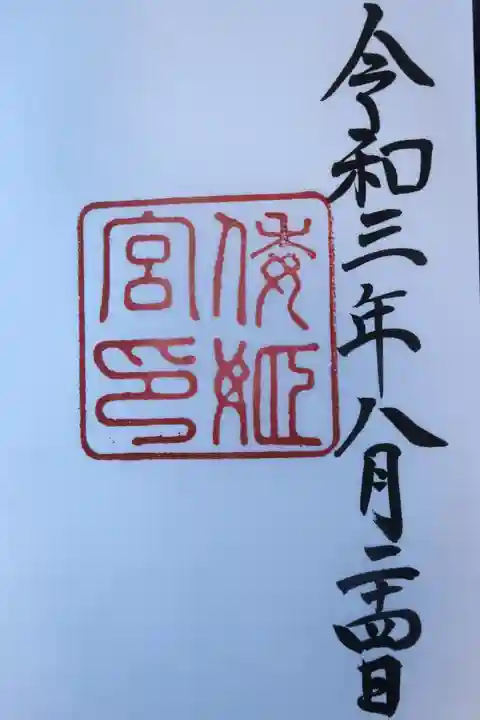 令和三年八月二十四日
倭姫
宮印